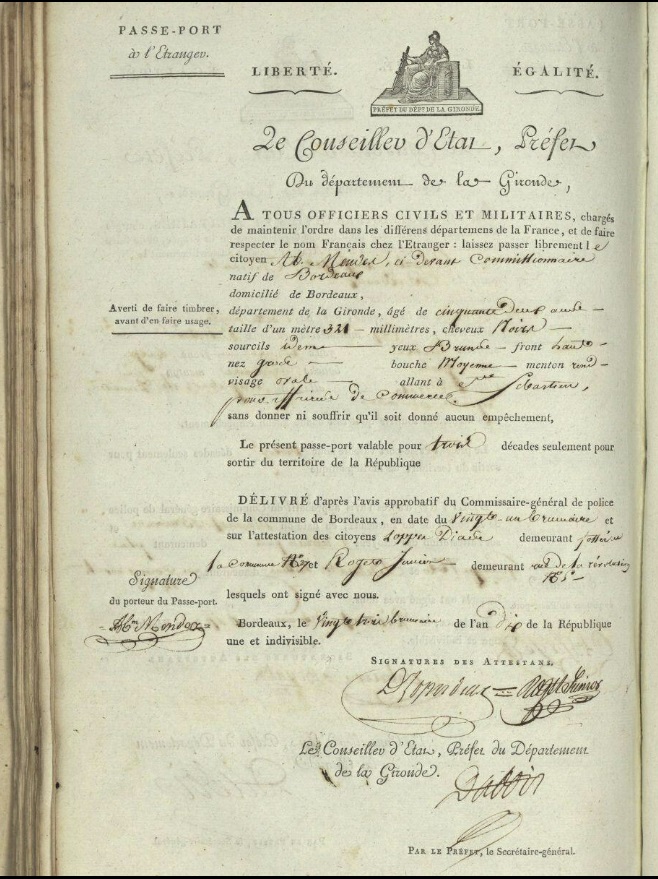 PASSE-PORT
à l'Etranger.
LIBERTÉ. ÉGALITÉ.
PRÉFET DU DÉPT DE LA GIRONDE
Le Conseiller d'Etat, Préfet
Du département de la Gironde,
A TOUS OFFICIERS CIVILS ET MILITAIRES, chargés
de maintenir l'ordre dans les différens départemens de la France, et de faire
respecter le nom Français chez l'Etranger : laissez passer librement le
citoyen Ab. Mendes, ci devant Committionnaire
natif de Bordeaux
domicilié de Bordeaux,
Averti de faire timbrer,
avant d'en faire usage.
département de la Gironde, âgé de cinquante deux ans
taille d'un mètre 321 millimètres, cheveux Noirs
sourcils idem yeux Bruns front haut
nez gros bouche Moyenne menton rond
visage ovale allant à St Sebastien,
pour affaires de Commerce.
sans donner ni souffrir qu'il soit donné aucun empêchement,
Le présent passe-port valable pour trois décades seulement pour
sortir du territoire de la République
DÉLIVRÉ d'après l'avis approbatif du Commissaire-général de police
de la commune de Bordeaux, en date du Vingt un brumaire et
sur l'attestation des citoyens Lopes Diaz demeurant
la Commune et Roget Junior demeurant rue de la révolution
lesquels ont signé avec nous.
Signature
du porteur du Passe-port.
Abm Mendes
Bordeaux, le Vingt trois brumaire de l'an Dix de la République
une et indivisible.
SIGNATURES DES ATTESTANS.
Roget Junior
Le Conseiller d'Etat, Préfet du Département
de la Gironde.
Dubois
PAR LE PRÉFET, le Secrétaire-général.